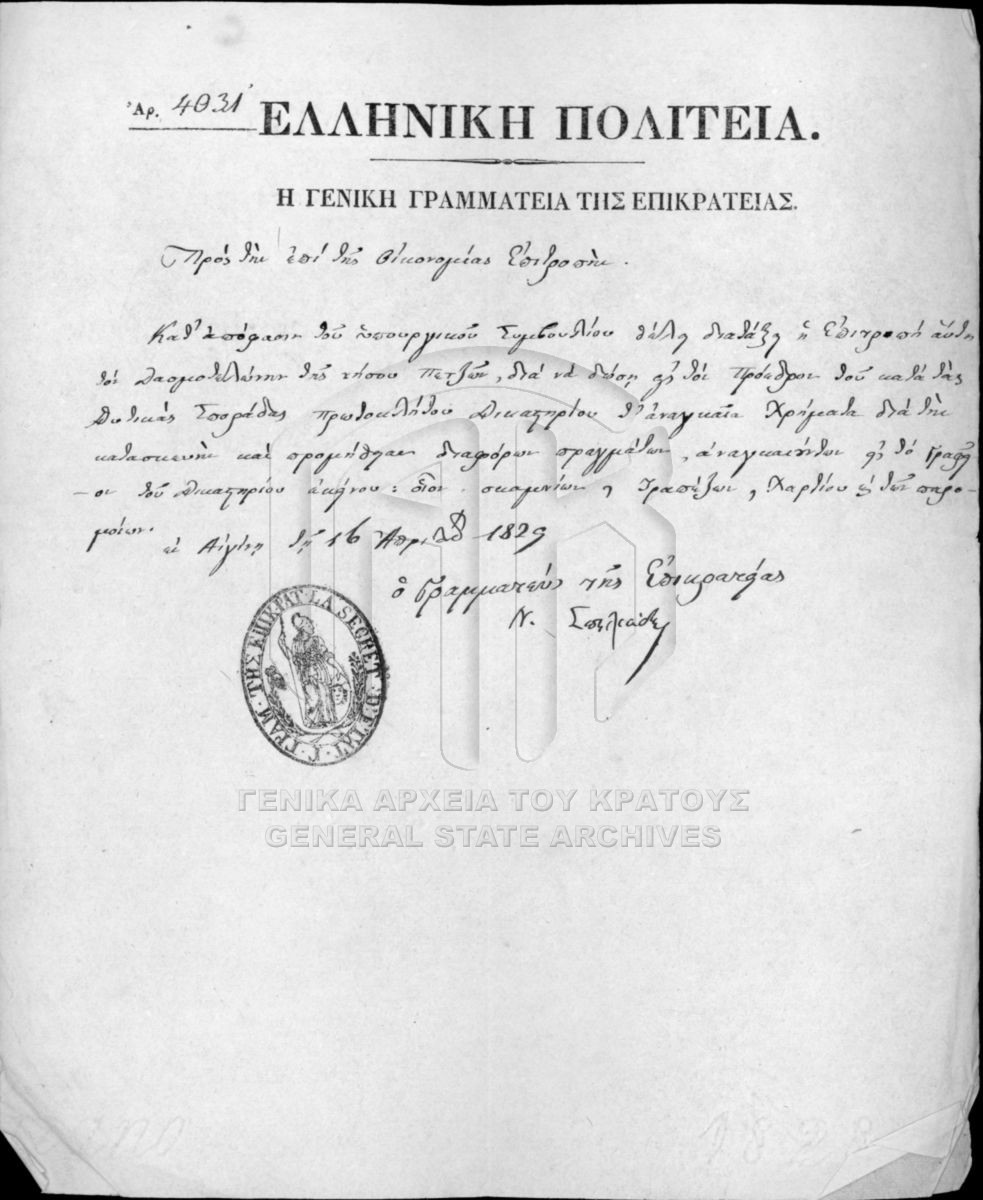 Ἀρ. 4031
ΕΛΛΗΝΙΚΗ ΠΟΛΙΤΕΙΑ.
Η ΓΕΝΙΚΗ ΓΡΑΜΜΑΤΕΙΑ ΤΗΣ ΕΠΙΚΡΑΤΕΙΑΣ.
Πρὸς τὴν ἐπὶ τῆς Οἰκονομίας Ἐπιτροπήν.
Κατ' ἀπόφασιν τοῦ ὑπουργικοῦ Συμβουλίου θέλει διατάξῃ ἡ Ἐπιτροπὴ αὕτη
τὸν δασμοτελώνην τῆς νήσου Πετζῶν, διὰ νὰ δώσῃ εἰς τὸν Πρόεδρον τοῦ κατὰ τὰς
Δυτικὰς Σποράδας πρωτοκλήτου Δικαστηρίου τ' ἀναγκαῖα Χρήματα διὰ τὴν
κατασκευὴν καὶ προμήθειαν διαφόρων πραγμάτων, ἀναγκαιούντων εἰς τὸ Γραφεῖ
-ον τοῦ Δικαστηρίου ἐκείνου: οἷον, σκαμνίων, Τραπέζων, Χαρτίου καὶ τῶν παρο-
μοίων.
ἐν Αἰγίνῃ τῇ 16 Ἀπριλίου 1829
ὁ Γραμματεὺς τῆς Ἐπικρατείας
Ν. Σπηλιάδης
Γ. ΓΡΑΜ. ΤΗΣ ΕΠΙΚΡΑΤ. LA SECRET. D'ETAT.
ΓΕΝΙΚΑ ΑΡΧΕΙΑ ΤΟΥ ΚΡΑΤΟΥΣ
GENERAL STATE ARCHIVES